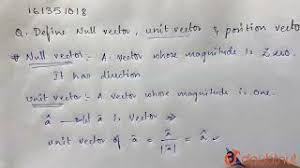 161351018
Q. Define Null vector, unit vector & position vector
# Null vector:- A vector whose magnitude is zero.
It has direction
unit vector:- A vector whose magnitude is one.
â is vector
unit vector of â = â / |a| = â